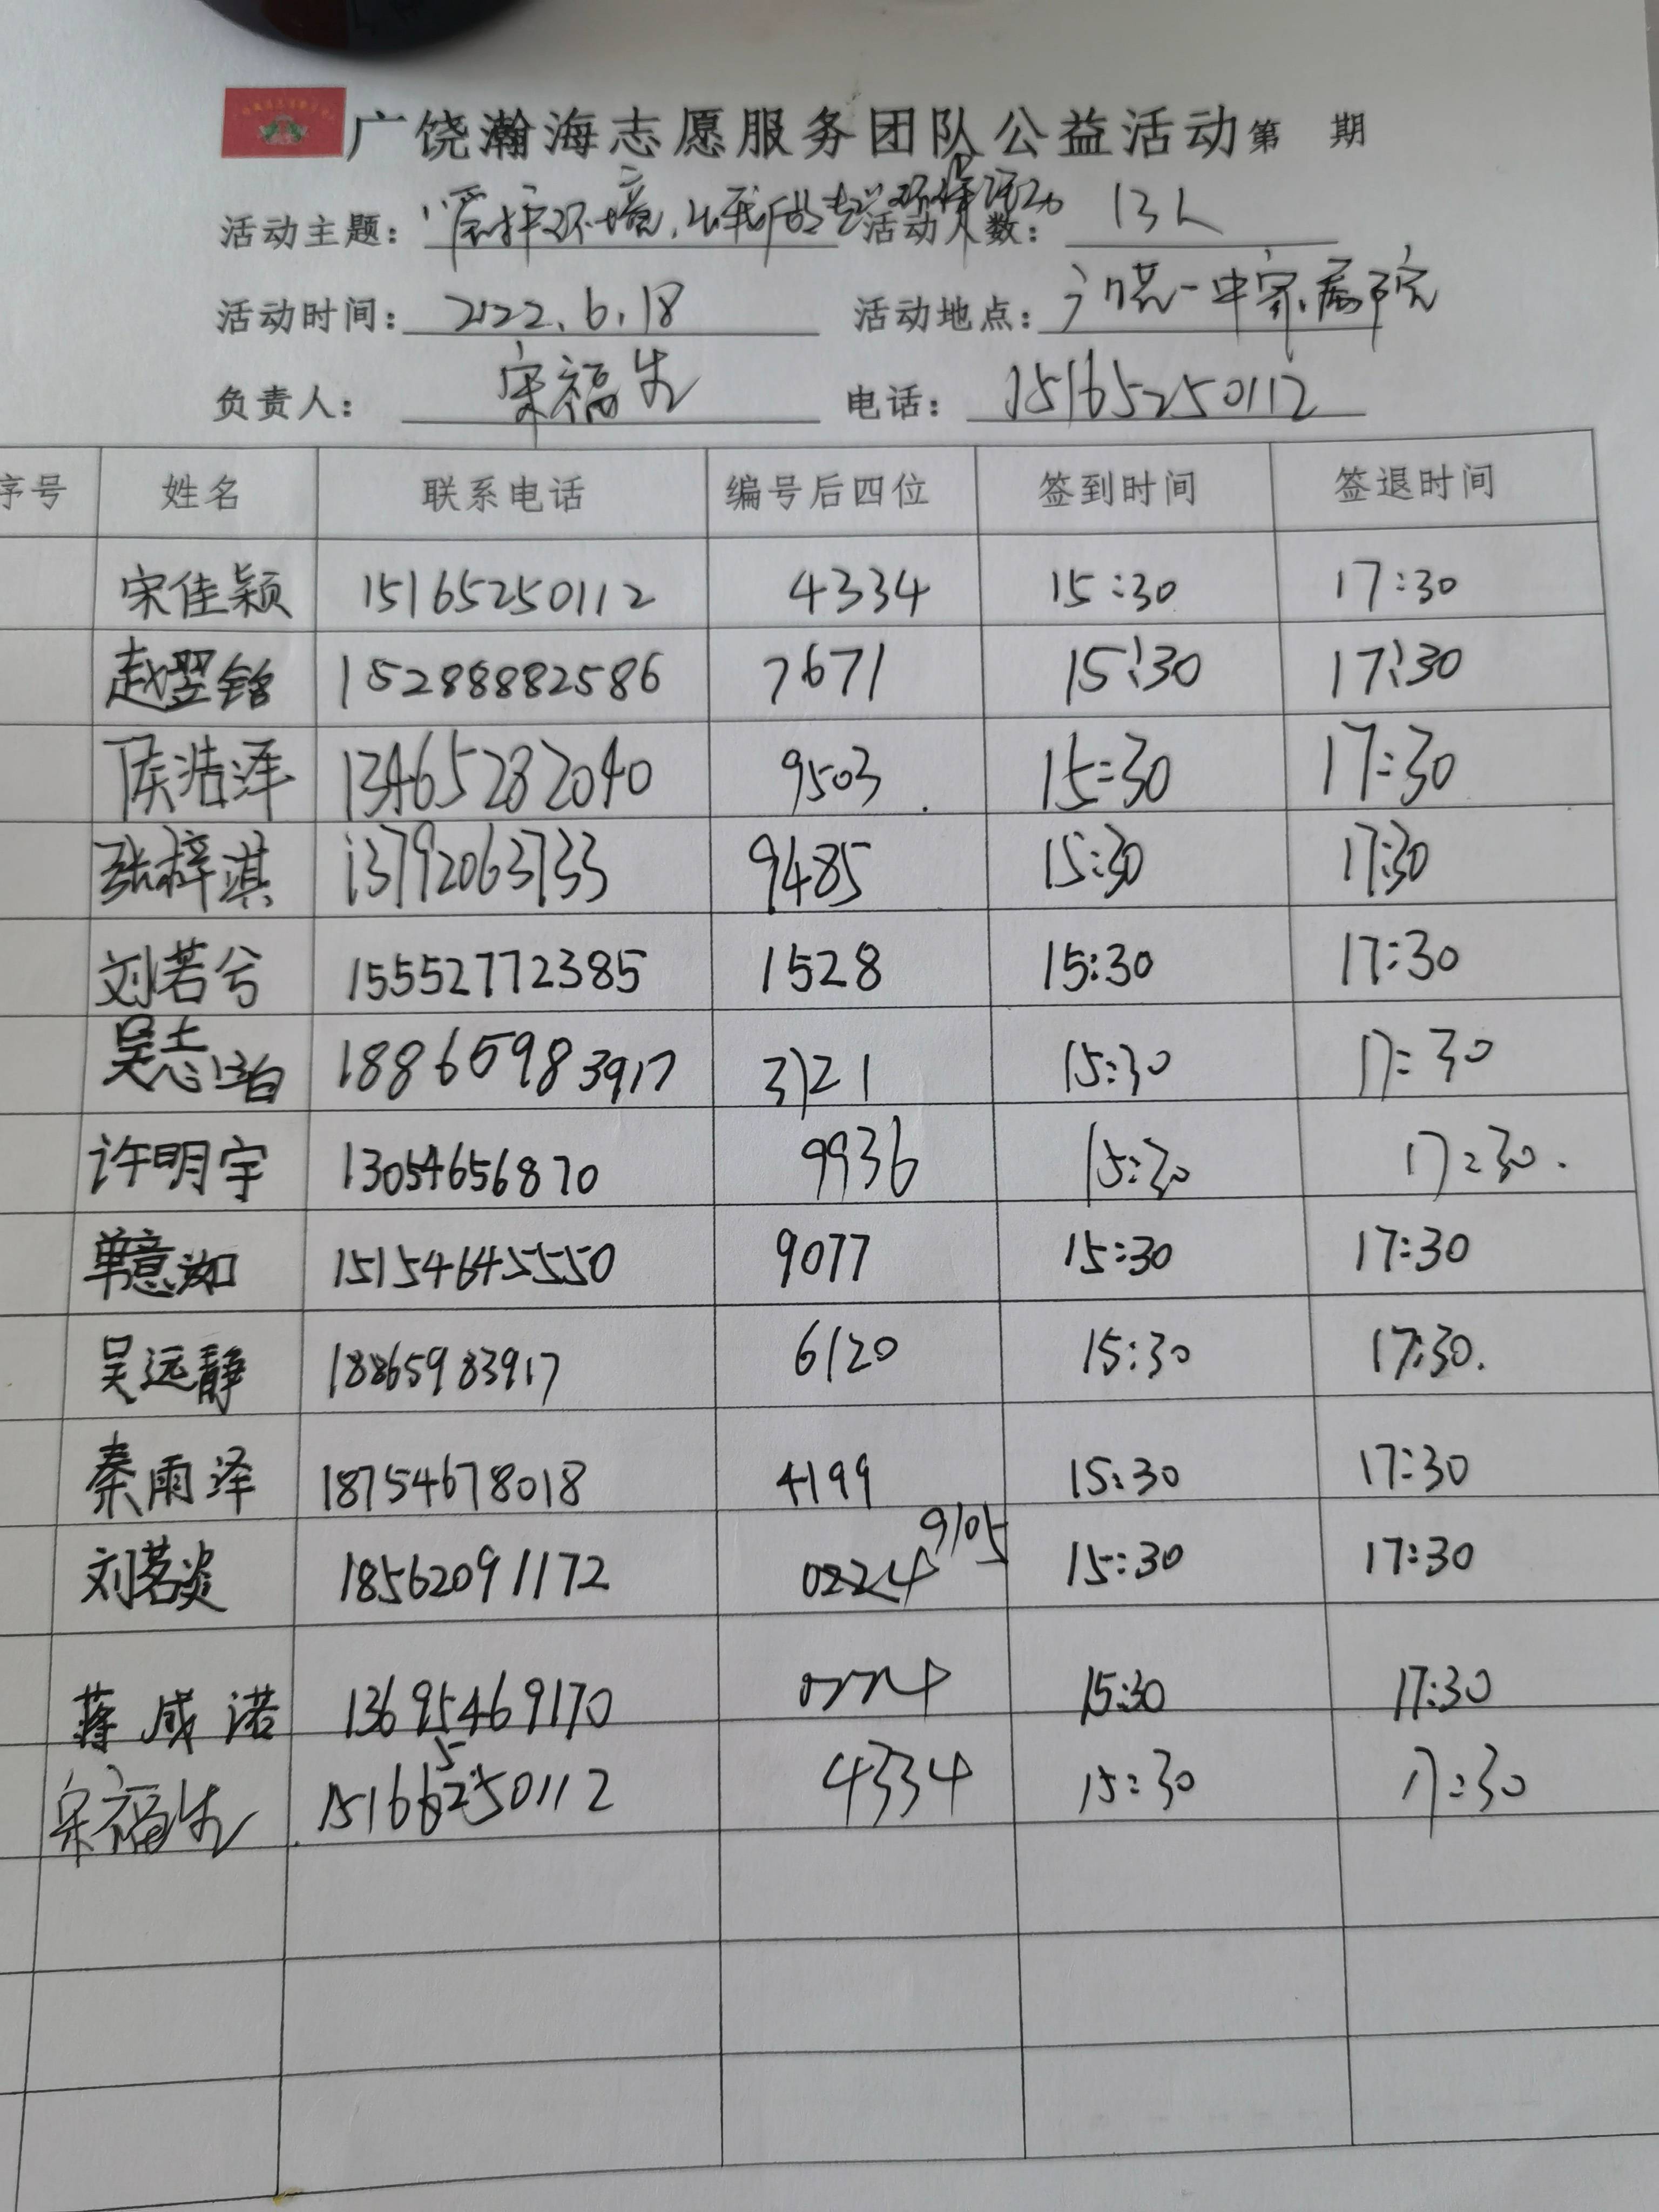 广饶瀚海志愿服务团队公益活动第 期
活动主题: "爱护环境,从我做起" 环保活动 活动人数: 13人
活动时间: 2022.6.18 活动地点: 广饶一中家属院
负责人: 宋福生 电话: 15165250112
序号 姓名 联系电话 编号后四位 签到时间 签退时间
宋佳颖 15165250112 4334 15:30 17:30
赵翌铭 15288882586 7671 15:30 17:30
侯浩泽 13465282040 9503 15:30 17:30
张梓淇 13792063733 9485 15:30 17:30
刘若兮 15552772385 1528 15:30 17:30
吴志 18865983917 3121 15:30 17:30
许明宇 13054656870 9936 15:30 17:30
单意如 15154645550 9077 15:30 17:30
吴远静 18865983917 6120 15:30 17:30.
秦雨泽 18754678018 4199 15:30 17:30
刘茗炎 18562091172 0224 9105 15:30 17:30
蒋成诺 13695469170 15:30 17:30
宋福生 15165250112 4334 15:30 17:30